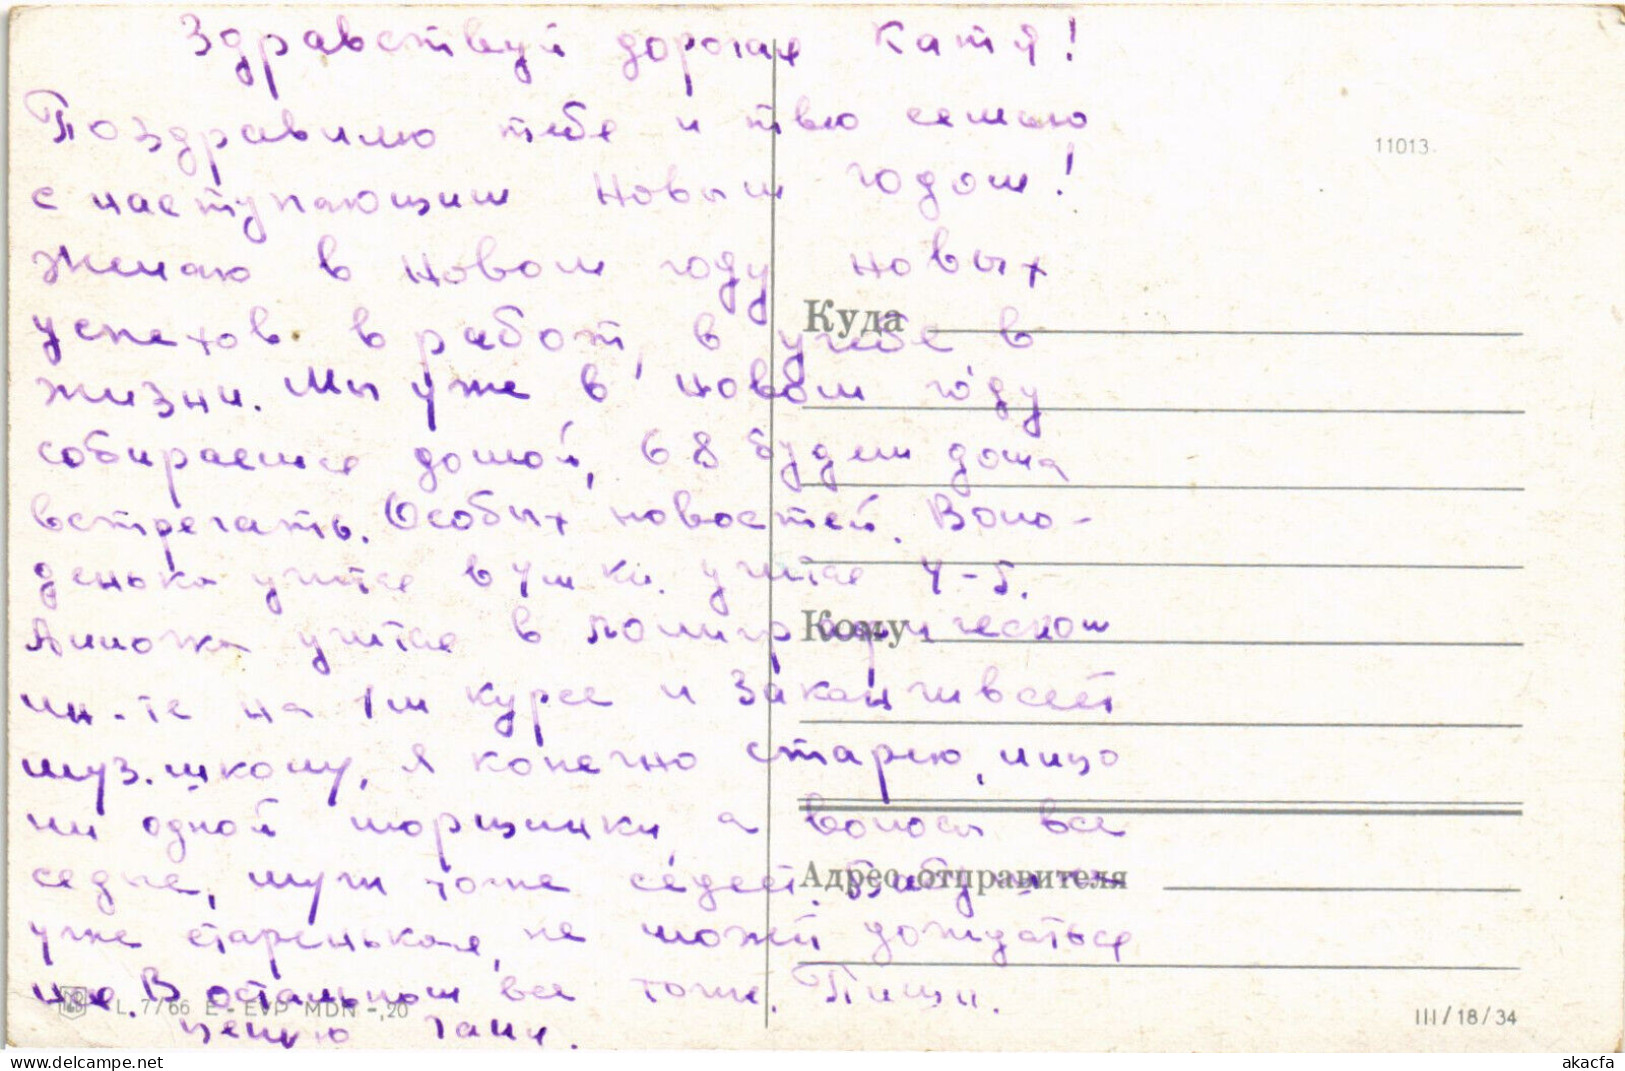 Здравствуй дорогая Катя!
Поздравляю тебя и твою семью
с наступающим Новым годом!
Желаю в новом году новых
успехов в работ, в учебе, в
жизни. Мы уже в новом году
собираемся домой, 68 будем дома
встречать. Особых новостей. Воло-
денька учится в 4 учится 4-5.
Аллочка учится в полиграфическом
ин-те на 1м курсе и заканчивает
муз. школу, я конечно старею, лицо
ни одной морщинки, а волоса все
седые, муж тоже седеет. Бабушка
уже старенькая, не может дождаться
нас. В остальном все тоже. Пиши.
целую Галя.
11013
Куда
Кому
Адрес отправителя
L. 7/66 E - EVP MDN -,20
III/18/34
akacfa